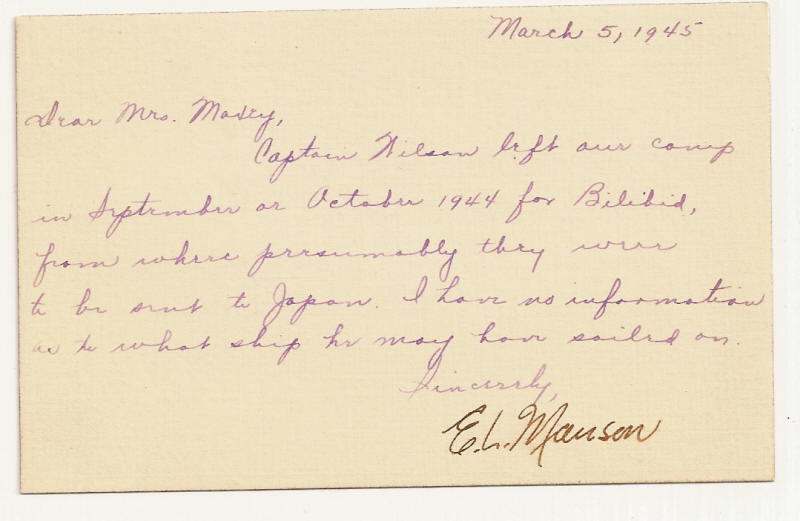 March 5, 1945
Dear Mrs.
Captain Wilson left our camp
in September or October 1944 for Bilibid,
from where presumably they were
to be sent to Japan. I have no information
as to what ship he may have sailed on.
Sincerely,
E.L. Manson